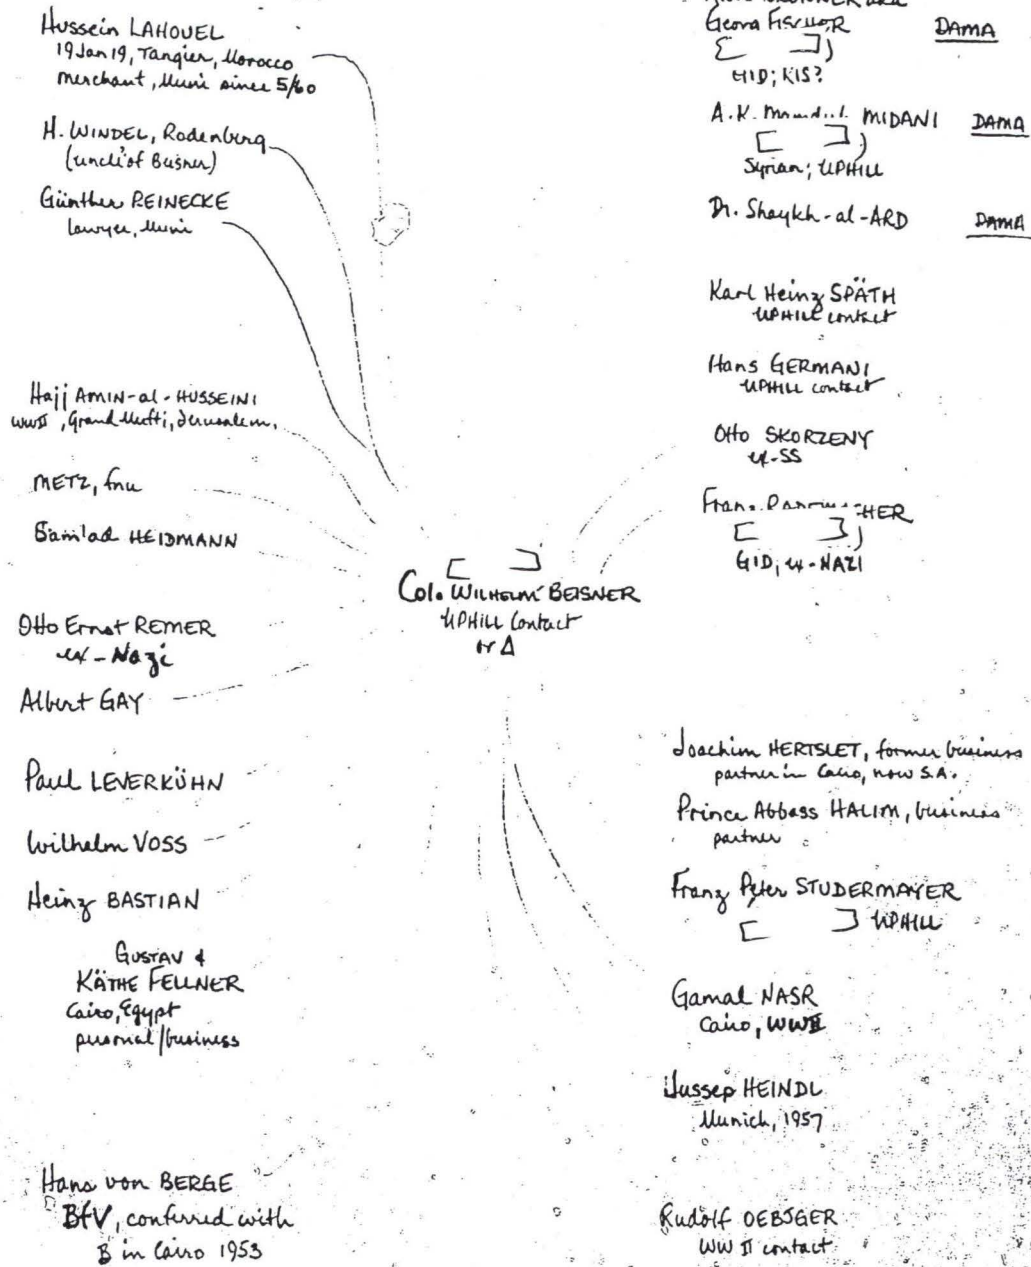 Hussein LAHOUEL
19 Jan 19, Tangier, Morocco
merchant, Muni since 5/60
H. WINDEL, Rodenberg
(uncle of Beisner)
Günther REINECKE
lawyer, Muni
Hajj AMIN-al-HUSSEINI
WWII, Grand Mufti, Jerusalem.
METZ, fnu
HEIDMANN
Otto Ernst REMER
ex-Nazi
Albert GAY
Paul LEVERKÜHN
Wilhelm VOSS
Heinz BASTIAN
GUSTAV &
KÄTHE FELLNER
Cairo, Egypt
personal/business
Hans von BERGE
BfV, conferred with
B in Cairo 1953
Col. WILHELM BEISNER
UPHILL Contact
or Δ
Georg FISCHER DAMA
GID; RIS?
A.K. MIDANI DAMA
Syrian; UPHILL
Dr. Shaykh-al-ARD DAMA
Karl Heinz SPÄTH
UPHILL contact
Hans GERMANI
UPHILL contact
Otto SKORZENY
ex-SS
GID; ex-NAZI
Joachim HERTSLET, former business
partner in Cairo, now S.A.
Prince Abbass HALIM, business
partner
Franz Peter STUDERMAYER
UPHILL
Gamal NASR
Cairo, WWII
Jussep HEINDL
Munich, 1957
Rudolf OEBSGER
WW II contact